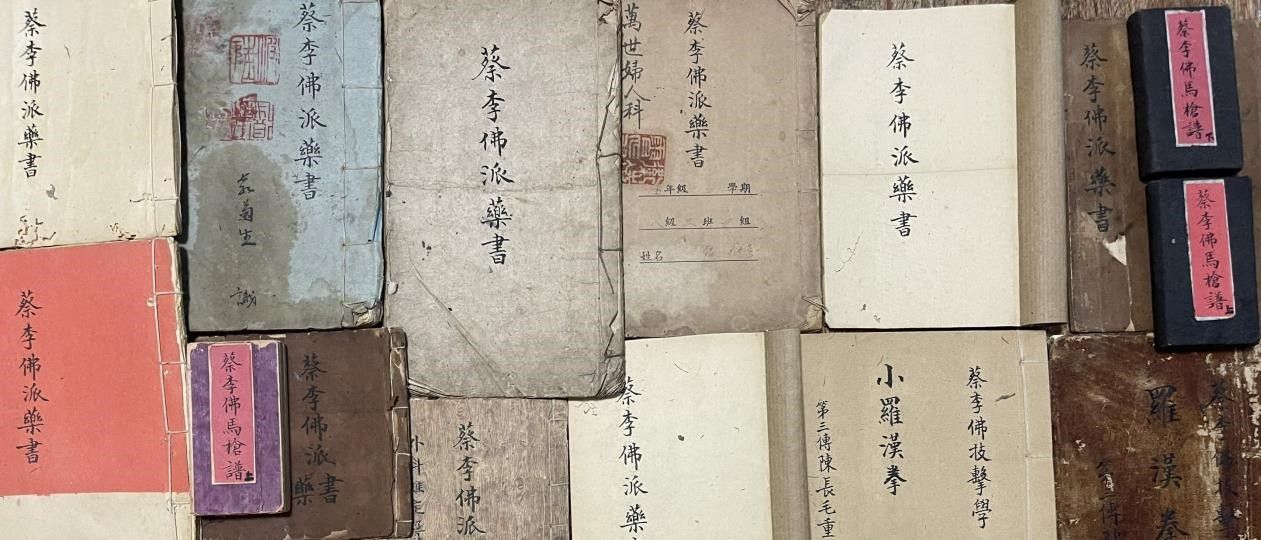 蔡李佛派藥書
蔡李佛派藥書
菊生
識
蔡李佛派藥書
蔡李佛派藥書
萬世婦人科
年級 學期
級 班 組
姓名
蔡李佛派藥書
蔡李佛派藥書
蔡李佛馬槍譜下
蔡李佛馬槍譜上
蔡李佛派藥書
蔡李佛馬槍譜上
蔡李佛派藥書
蔡李佛派
外科
蔡李佛派藥
蔡李佛技擊學
小羅漢拳
第三傳陳長毛重
蔡李佛技擊
羅漢拳